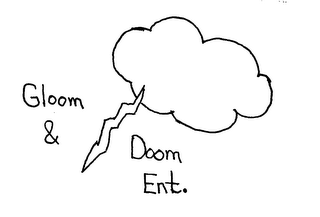 Gloom
&
Doom
Ent.